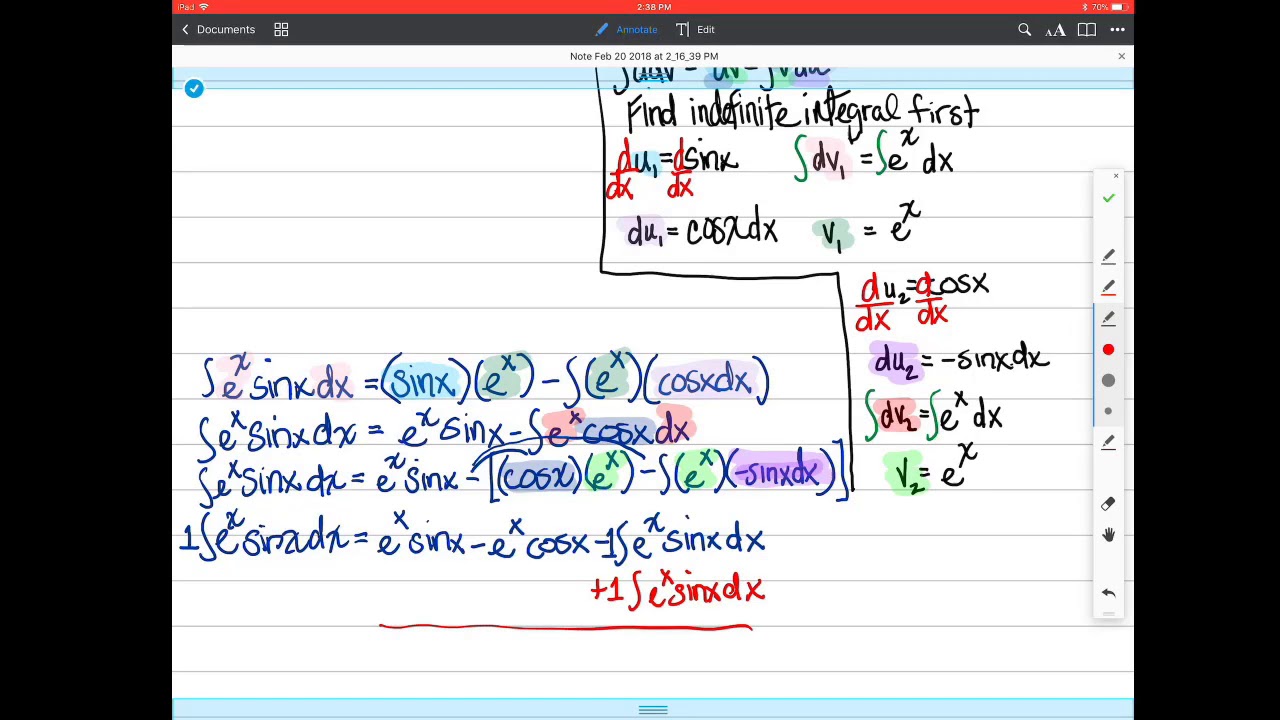 iPad 2:38 PM 70%
Documents Annotate T Edit AA
Note Feb 20 2018 at 2_16_39 PM
∫udv = uv − ∫vdu
Find indefinite integral first
d/dx u₁ = d/dx sinx ∫dv₁ = ∫e^x dx
du₁ = cosxdx v₁ = e^x
d/dx u₂ = d/dx cosx
du₂ = -sinxdx
∫e^x sinxdx = (sinx)(e^x) − ∫(e^x)(cosxdx)
∫dv₂ = ∫e^x dx
∫e^x sinxdx = e^x sinx − ∫e^x cosx dx
v₂ = e^x
∫e^x sinxdx = e^x sinx − [(cosx)(e^x) − ∫(e^x)(-sinxdx)]
1∫e^x sinxdx = e^x sinx − e^x cosx − 1∫e^x sinxdx
+1∫e^x sinxdx